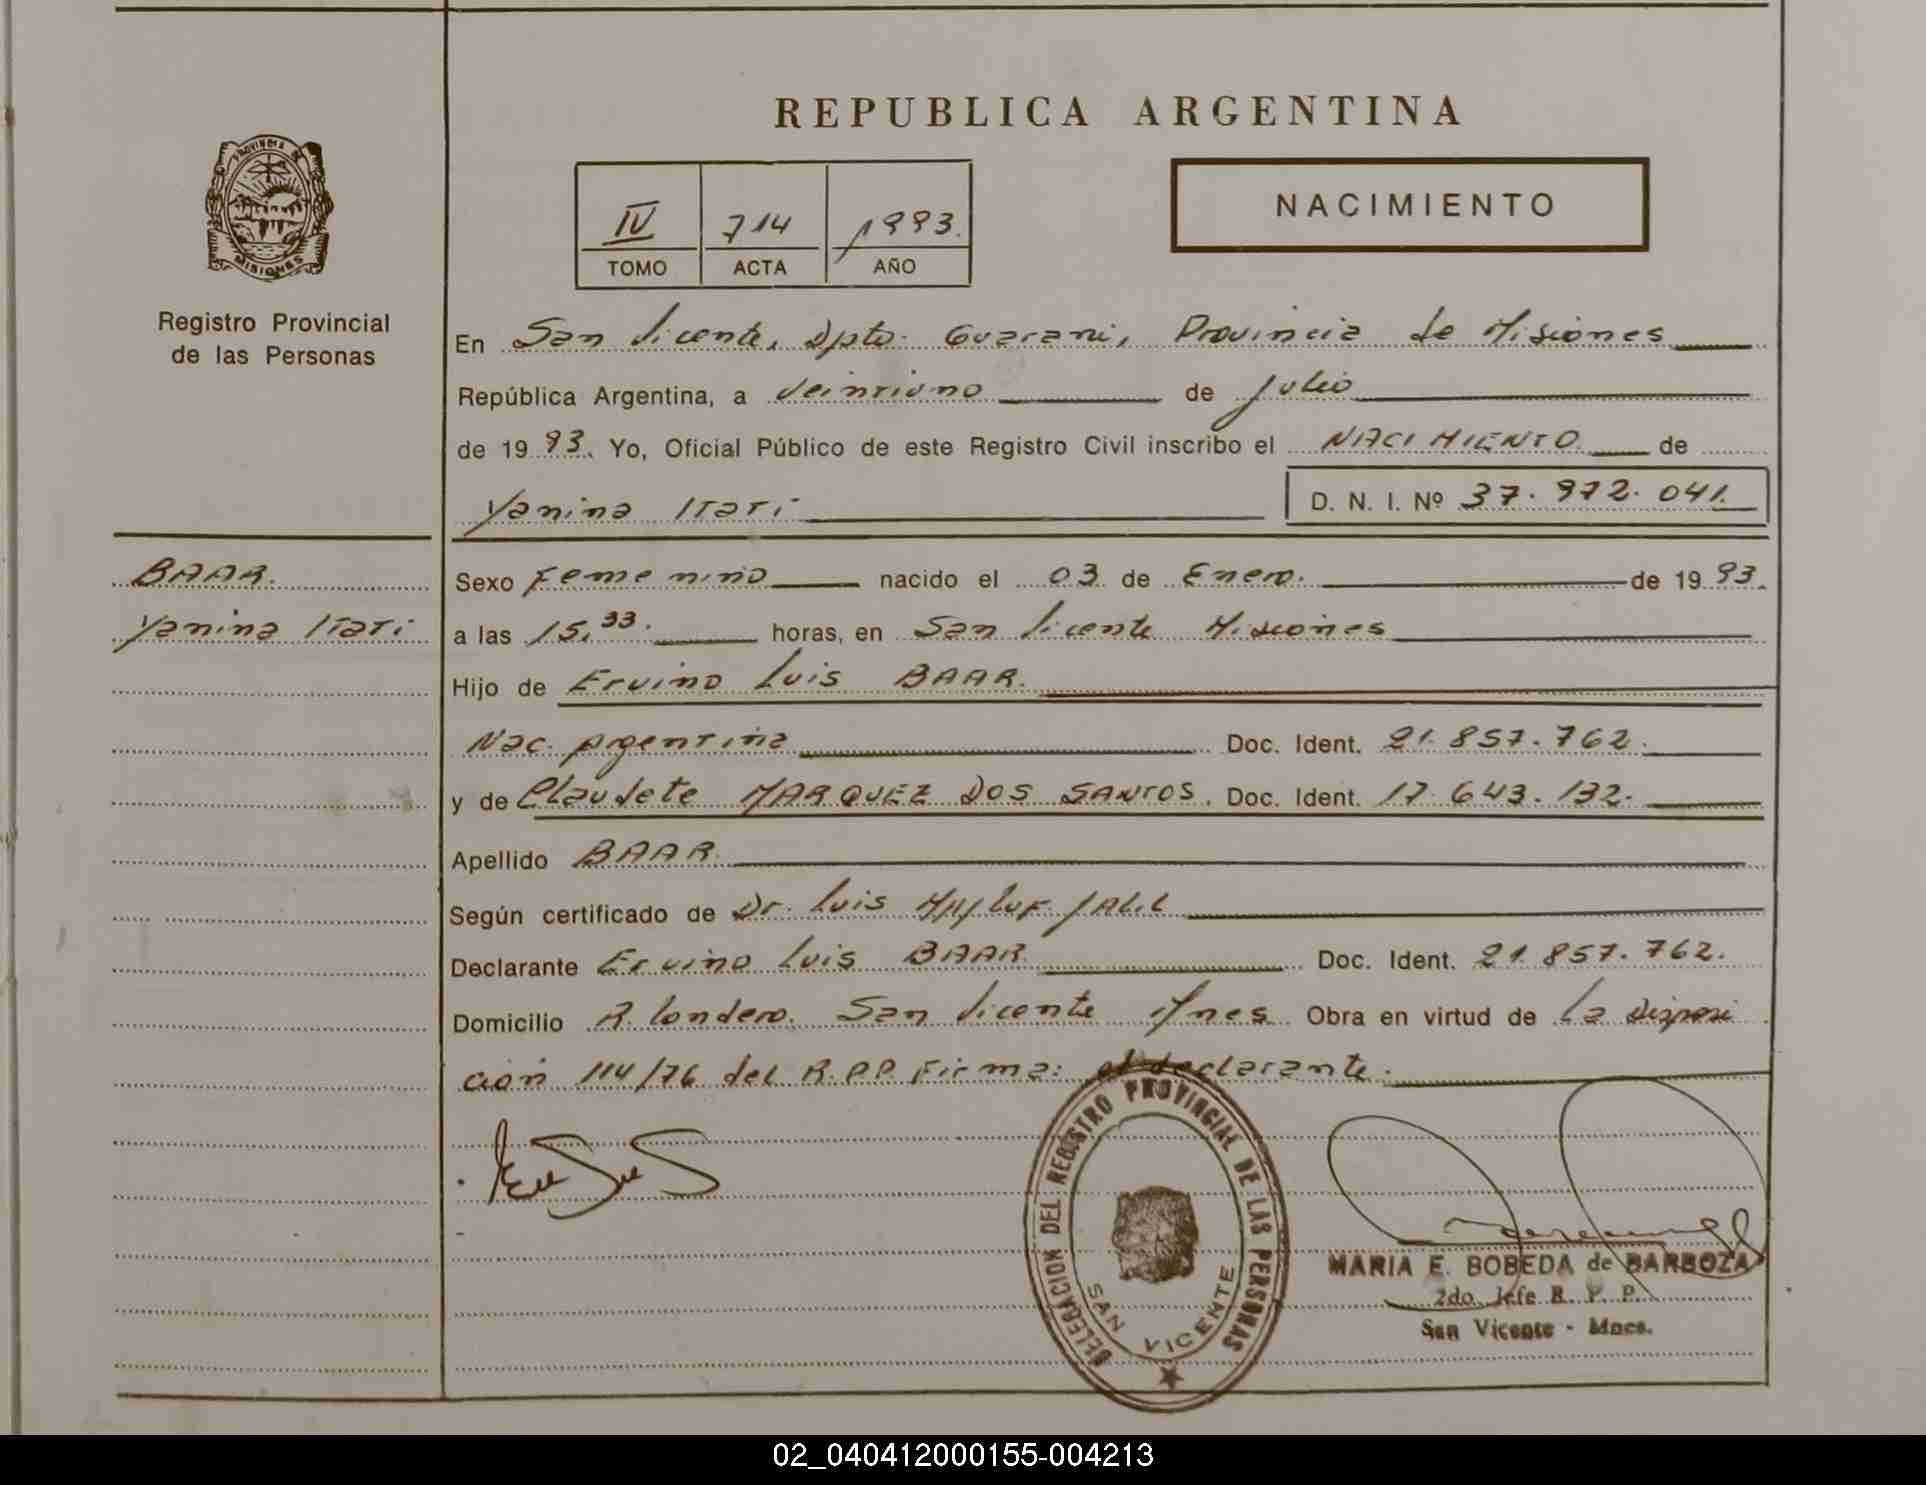 REPUBLICA ARGENTINA
PROVINCIA DE
MISIONES
Registro Provincial
de las Personas
IV 714 1993.
TOMO ACTA AÑO
NACIMIENTO
En San Vicente, Dpto. Guarani, Provincia de Misiones
República Argentina, a veintiuno de Julio
de 19 93. Yo, Oficial Público de este Registro Civil inscribo el NACIMIENTO de
Yanina Itati D. N. I. Nº 37.972.041.
BAAR.
Yanina Itati
Sexo Femenino nacido el 03 de Enero. de 19 93.
a las 15,33. horas, en San Vicente Misiones
Hijo de Ervino Luis BAAR.
Nac. argentina Doc. Ident. 21.857.762.
y de Claudete MARQUEZ DOS SANTOS. Doc. Ident. 17.643.132.
Apellido BAAR.
Según certificado de Dr. Luis JALIL
Declarante Ervino Luis BAAR Doc. Ident. 21.857.762.
Domicilio R. Londero. San Vicente Mnes Obra en virtud de La Disposi
ción 114/76 del R.P.P. Firma: el declarante.
DELEGACION DEL REGISTRO PROVINCIAL DE LAS PERSONAS
SAN VICENTE
MARIA E. BOBEDA de BARBOZA
2do. Jefe R. P. P.
San Vicente - Mnes.
02_040412000155-004213